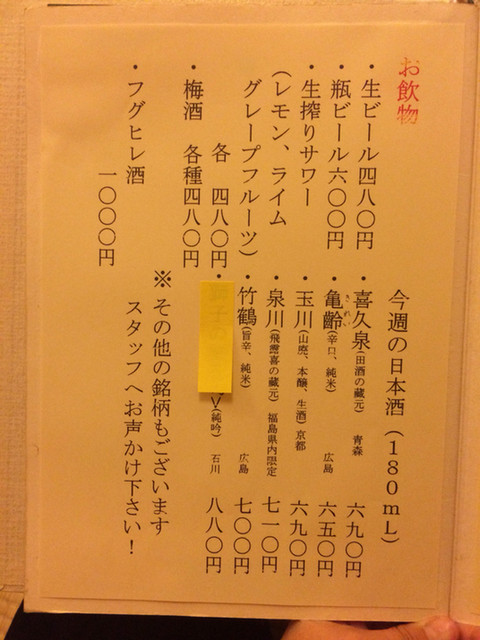 お飲物
・生ビール四八〇円
・瓶ビール六〇〇円
・生搾りサワー
(レモン、ライム
グレープフルーツ)
各 四八〇円
・梅酒 各種四八〇円
・フグヒレ酒
一〇〇〇円
今週の日本酒(180mL)
・喜久泉(田酒の蔵元) 青森 六九〇円
・亀齢(辛口、純米) 広島 六五〇円
きれい
・玉川(山廃、本醸、生酒)京都 六九〇円
・泉川(飛露喜の蔵元) 福島県内限定 七一〇円
・竹鶴(旨辛、純米) 広島 七〇〇円
V(純吟) 石川 八八〇円
※その他の銘柄もございます
スタッフへお声かけ下さい!